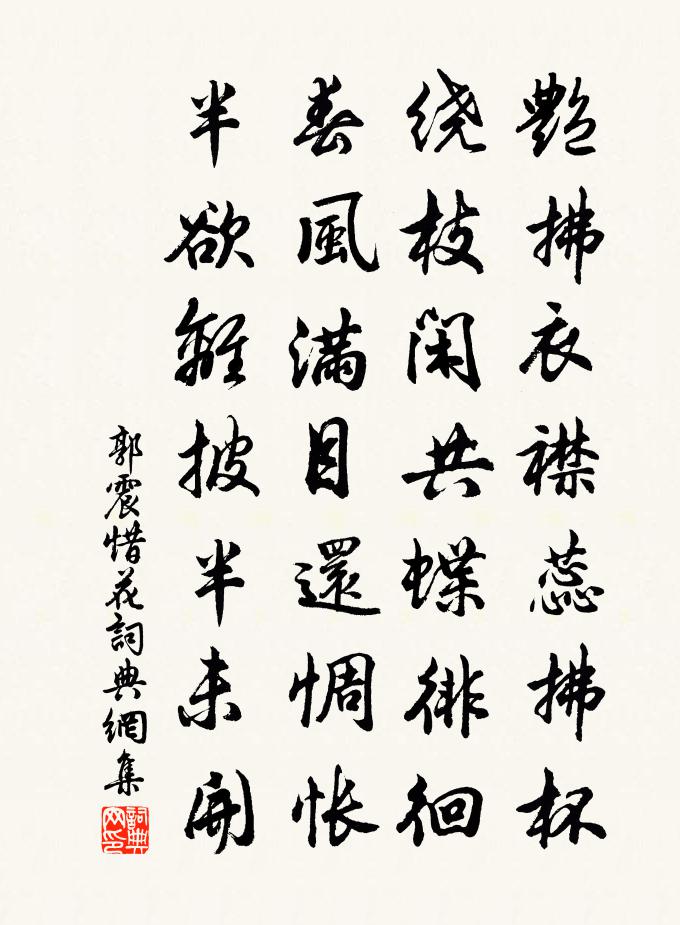 艷拂衣襟蕊拂杯
绕枝闲共蝶徘徊
春風滿目還惆怅
半欲離披半未開
郭震惜花詞典網集
詞典网印